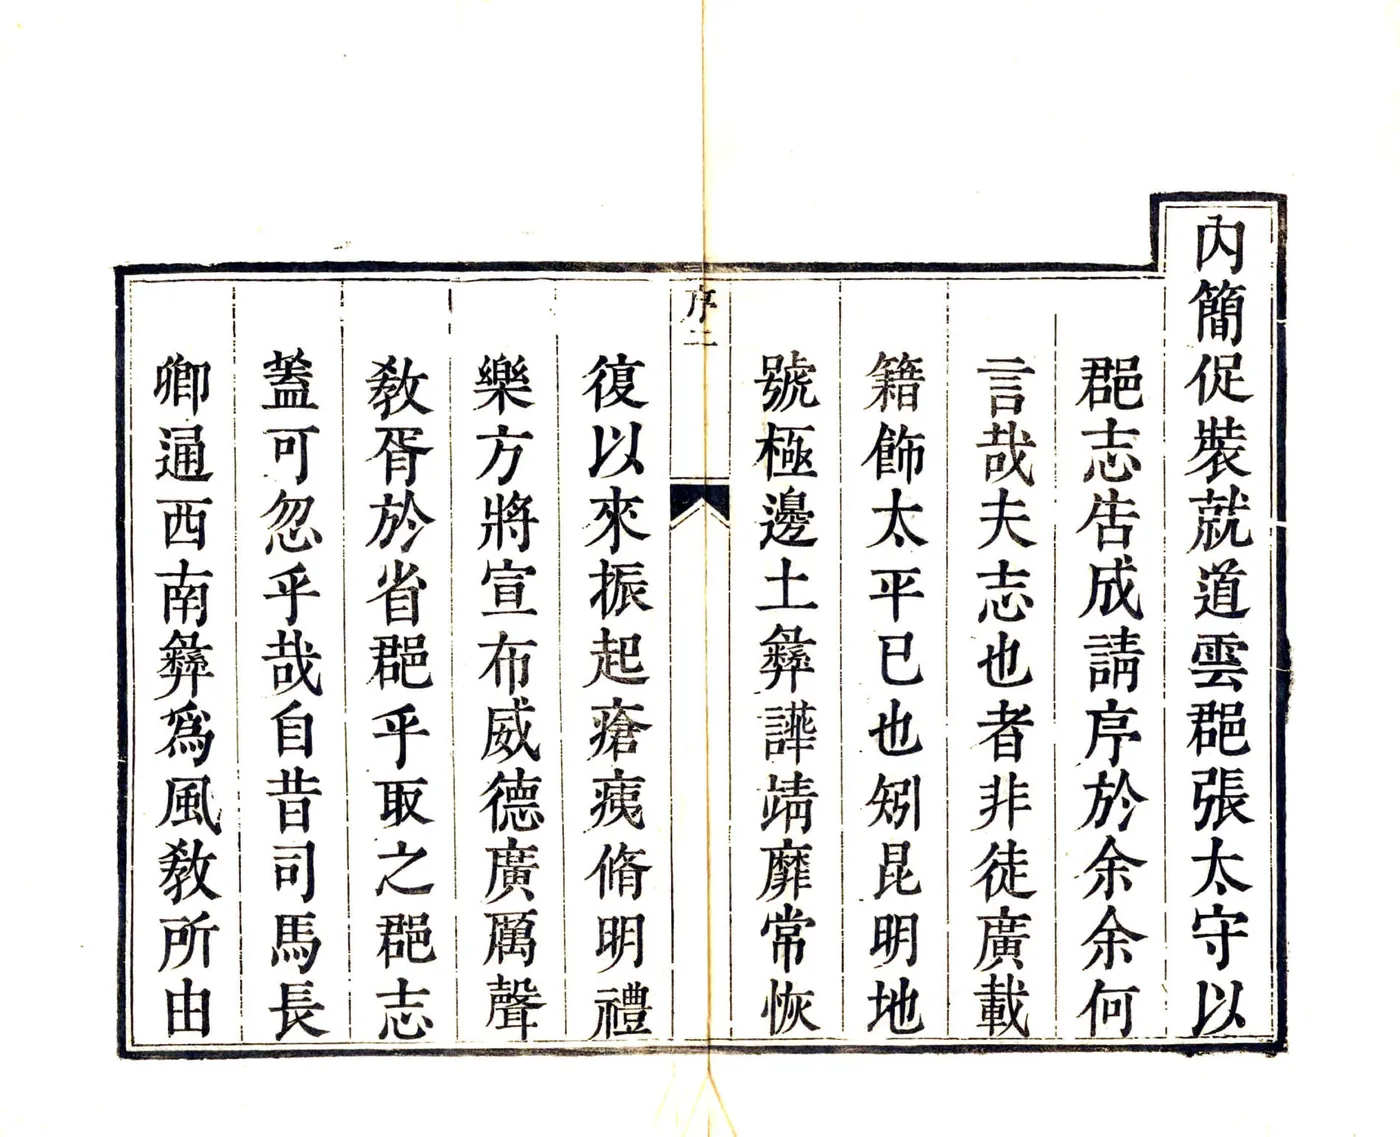 內簡促裝就道雲郡張太守以
郡志告成請序於余余何
言哉夫志也者非徒廣載
籍飾太平已也矧昆明地
號極邊土彝譁靖靡常恢
序二
復以來振起瘡痍脩明禮
樂方將宣布威德廣厲聲
敎胥於省郡乎取之郡志
蓋可忽乎哉自昔司馬長
卿通西南彝爲風敎所由